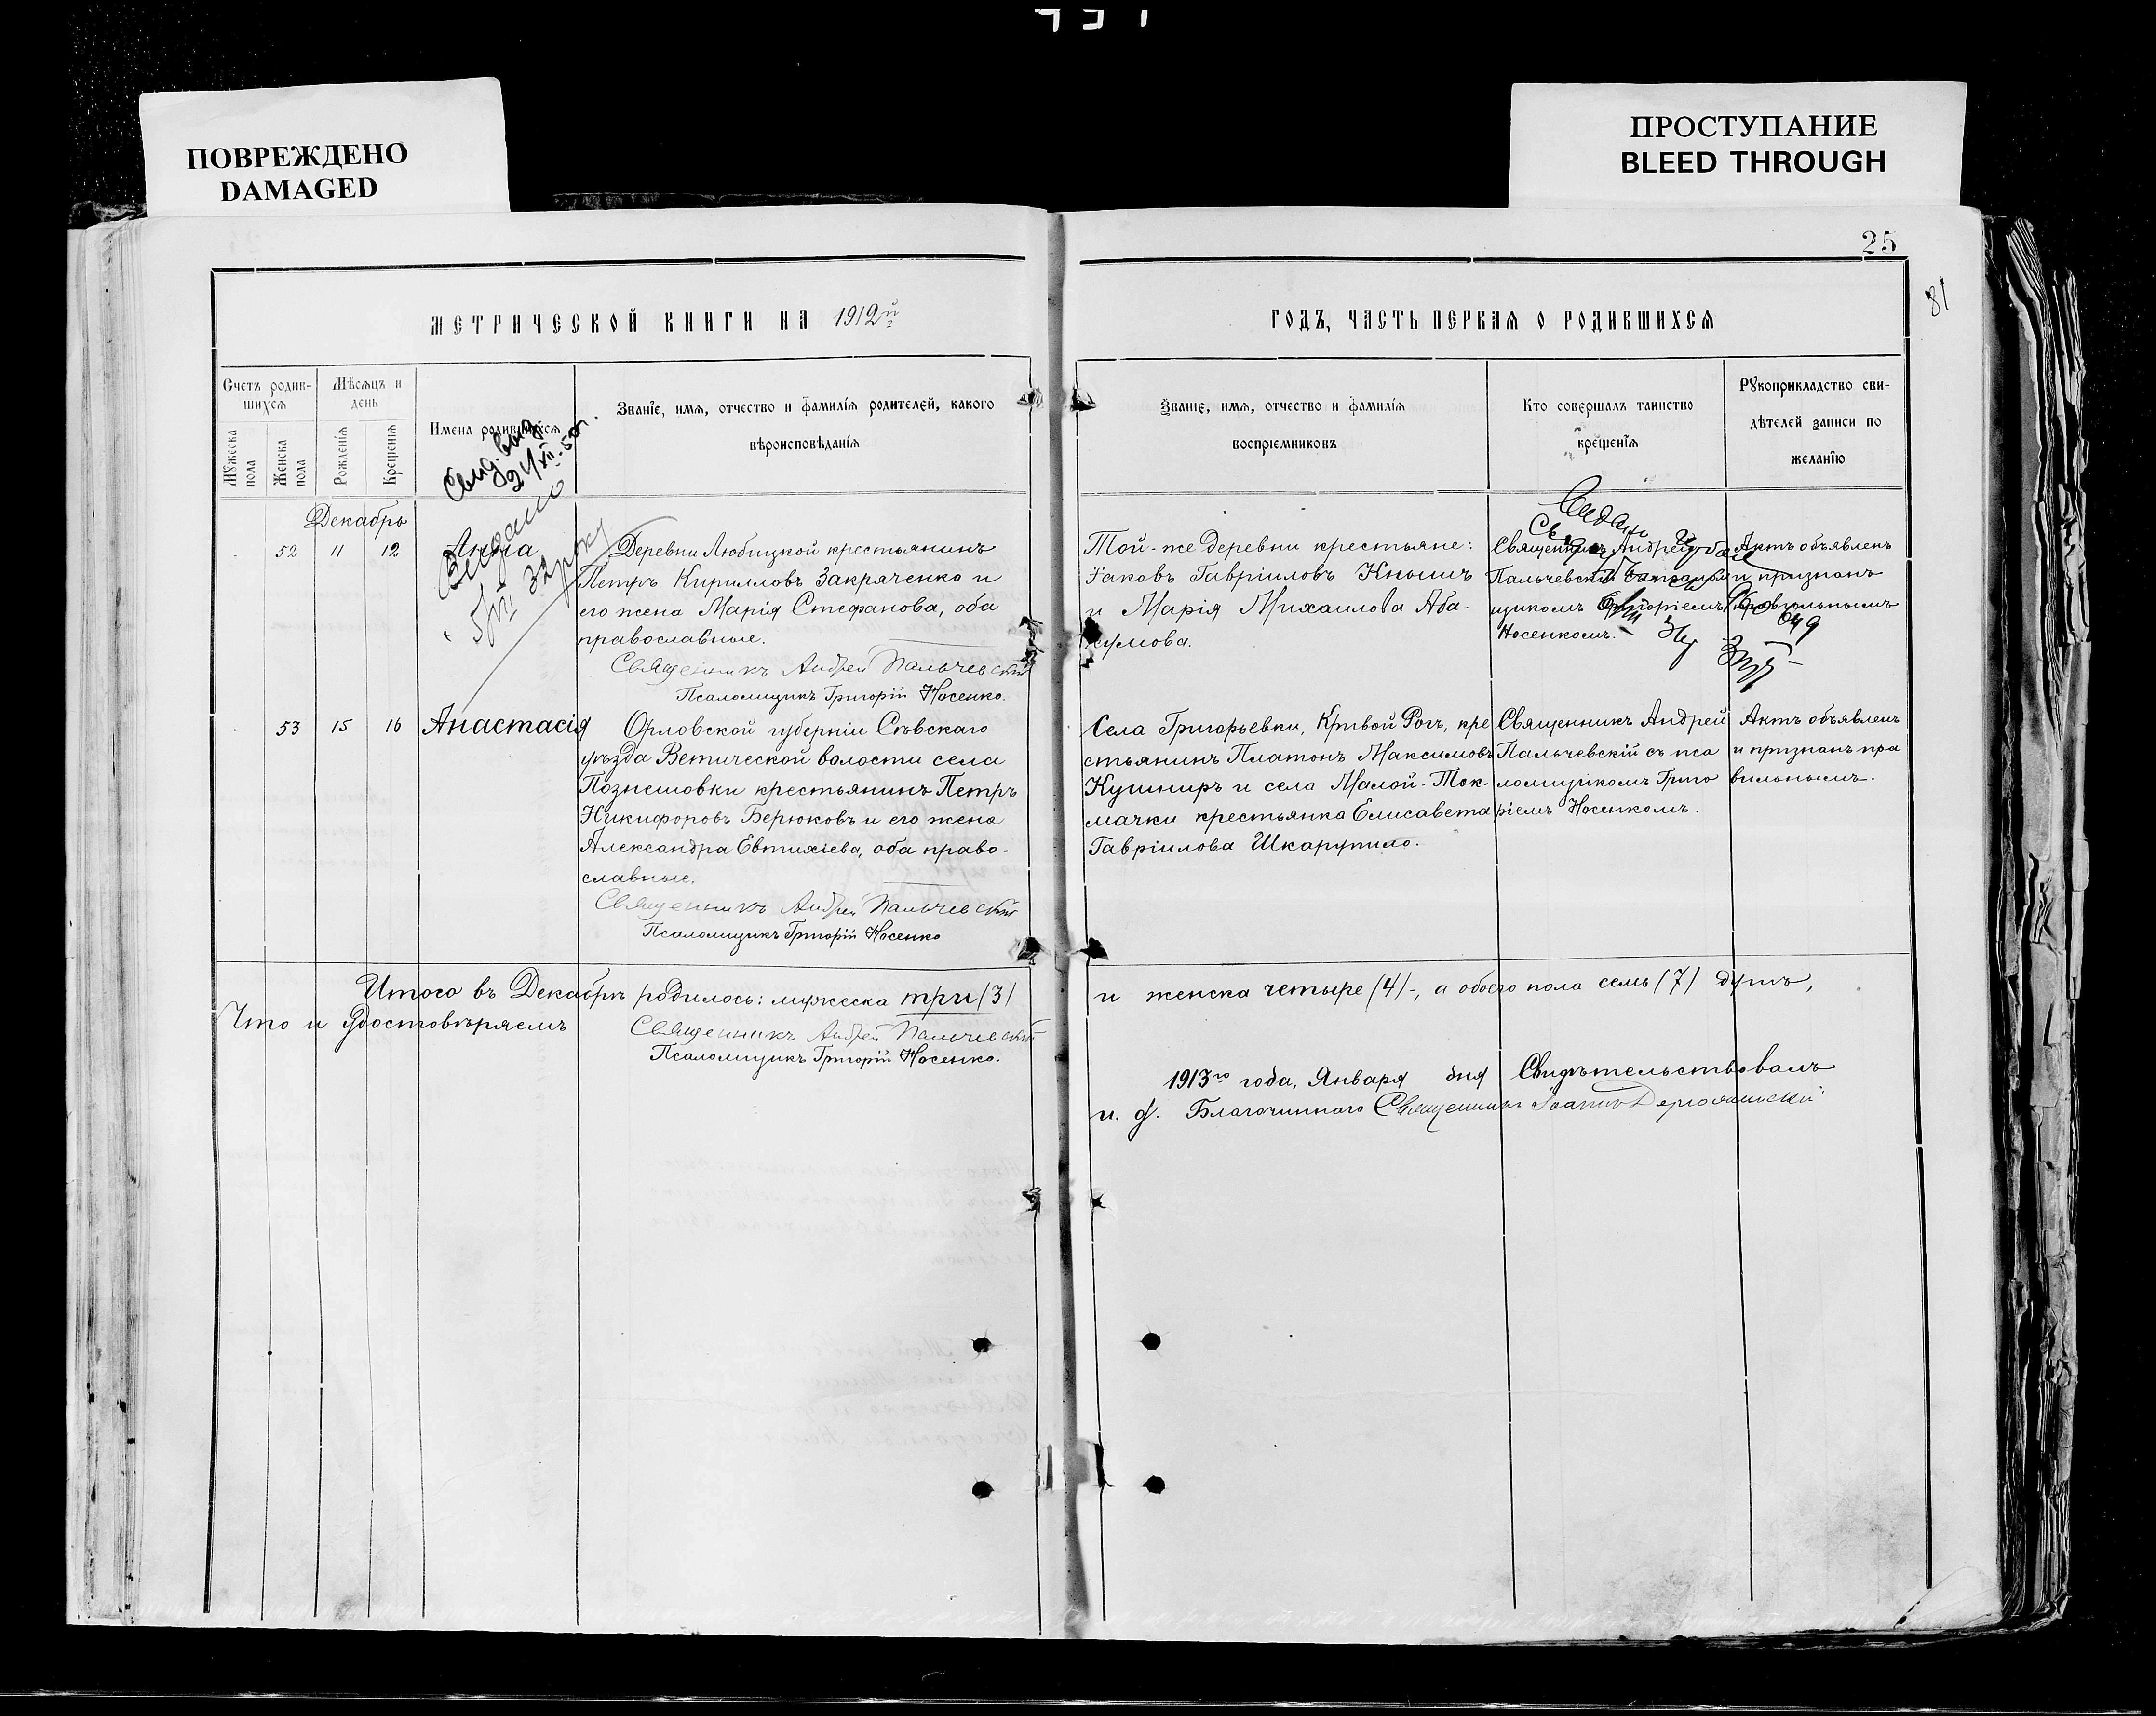 ПОВРЕЖДЕНО
DAMAGED
ПРОСТУПАНИЕ
BLEED THROUGH
25
81
МЕТРИЧЕСКОЙ КНИГИ НА 1912й
ГОДЪ, ЧАСТЬ ПЕРВАЯ О РОДИВШИХСЯ
Счетъ родив-
шихся
Мѣсяцъ и
день
Мужеска
пола
Женска
пола
Рожденія
Крещенія
Имена родившихся
Званіе, имя, отчество и фамилія родителей, какого
вѣроисповѣданія
Званіе, имя, отчество и фамилія
воспріемниковъ
Кто совершалъ таинство
крещенія
Рукоприкладство сви-
дѣтелей записи по
желанію
Свид. выд.
21/XII-50г.
Выдано
Декабрь
- 52 11 12 Анна
Деревни Любицкой крестьянинъ
Петръ Кирилловъ Закряченко и
его жена Марія Стефанова, оба
православные.
Священникъ Андрей Пальчевскій
Псаломщикъ Григорій Носенко.
Той-же деревни крестьяне:
Іаковъ Гавріиловъ Кнышъ
и Марія Михаилова Аба-
кумова.
Священникъ Андрей
Пальчевскій съ псалом-
щикомъ Григоріемъ
Носенкомъ.
Актъ объявленъ
и признанъ
правильнымъ
- 53 15 16 Анастасія
Орловской губерніи Сѣвскаго
уѣзда Ветической волости села
Познешовки крестьянинъ Петръ
Никифоровъ Берюковъ и его жена
Александра Евтихіева, оба право-
славные.
Священникъ Андрей Пальчевскій
Псаломщикъ Григорій Носенко
Села Григорьевки, Кривой Рогъ, кре
стьянинъ Платонъ Максимовъ
Кушниръ и села Малой-Ток-
мачки крестьянка Елисавета
Гавріилова Шкарупило.
Священникъ Андрей
Пальчевскій съ пса
ломщикомъ Григо
ріемъ Носенкомъ.
Актъ объявленъ
и признанъ пра
вильнымъ.
Итого въ Декабрѣ родилось: мужеска три (3)
и женска четыре (4)-, а обоего пола семь (7) душъ,
Что и удостовѣряемъ
Священникъ Андрей Пальчевскій
Псаломщикъ Григорій Носенко.
1913го года, Января дня Свидѣтельствовалъ
и. д. Благочиннаго Священникъ Іоаннъ